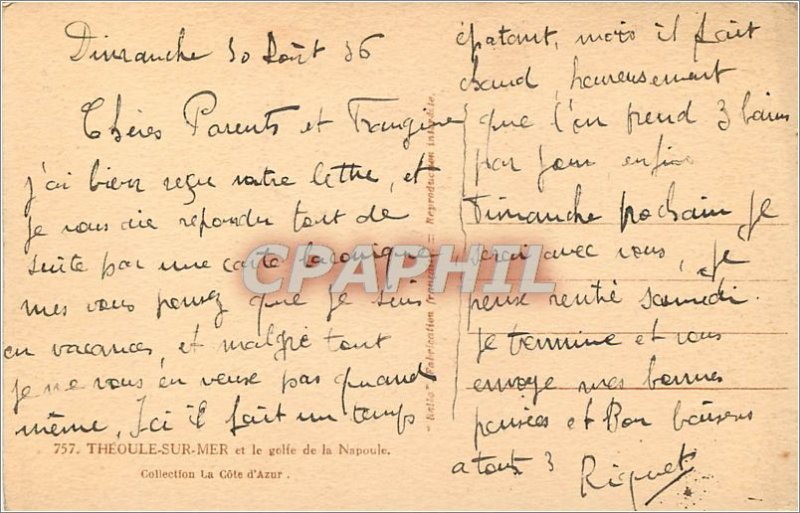 Dimanche 30 Août 36
Chères Parents et Frangine
j'ai bien reçu votre lettre, et
je vous ai repondu tout de
suite par une carte laconique
mes vous pensez que je suis
en vacances, et malgré tout
je ne vous en veux pas quand
même, Ici il fait un temps
757. THÉOULE-SUR-MER et le golfe de la Napoule.
Collection La Côte d'Azur.
épatant, mais il fait
chaud, heureusement
que l'on prend 3 bains
par jour enfin
Dimanche prochain je
serai avec vous, je
peux rentré samedi.
je termine et vous
envoye mes bonnes
pensées et Bon baisers
a tout 3
Riquet
Fabrication française — Reproduction interdite.
CPAPHIL